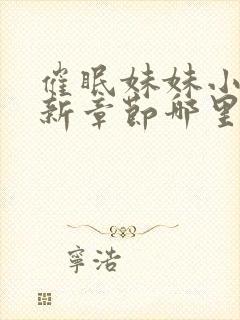 催眠妹妹小
新章節哪里
寧浩